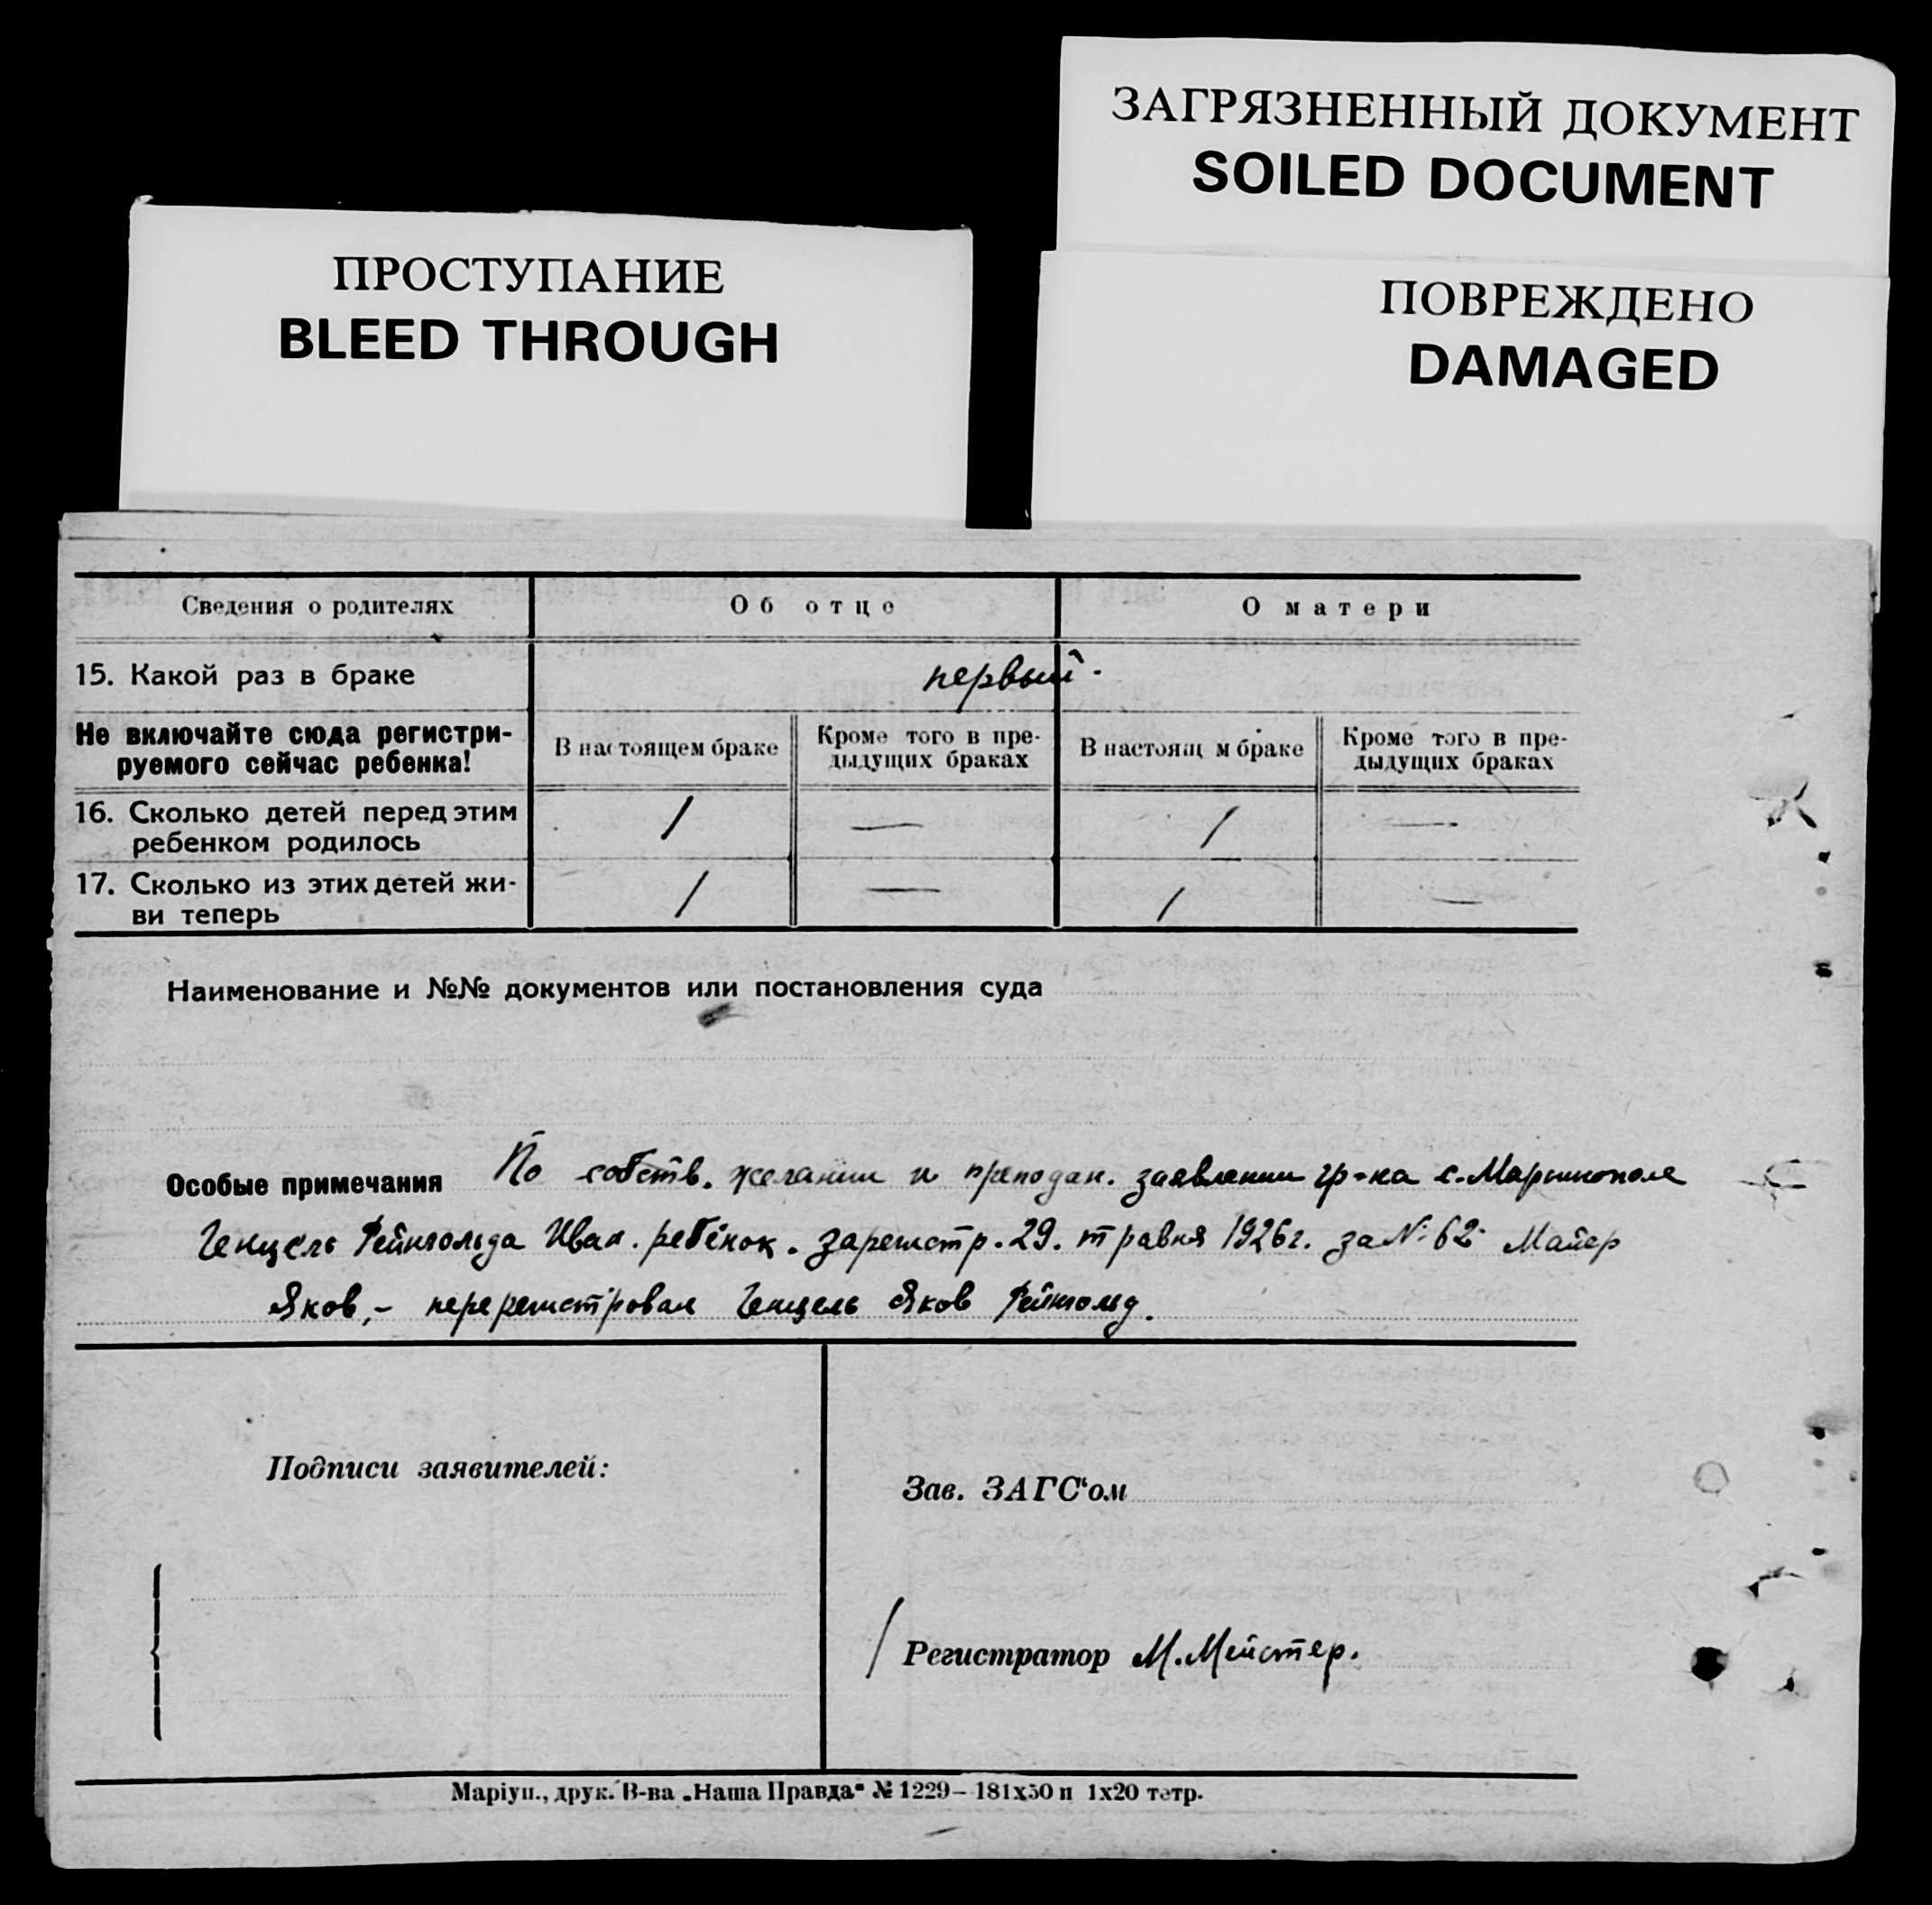 ЗАГРЯЗНЕННЫЙ ДОКУМЕНТ
SOILED DOCUMENT
ПРОСТУПАНИЕ
BLEED THROUGH
ПОВРЕЖДЕНО
DAMAGED
Сведения о родителях Об отце О матери
15. Какой раз в браке первый.
Не включайте сюда регистри-
руемого сейчас ребенка!
В настоящем браке
Кроме того в пре-
дыдущих браках
В настоящ м браке
Кроме того в пре-
дыдущих браках
16. Сколько детей перед этим
ребенком родилось / — / —
17. Сколько из этих детей жи-
ви теперь / — / —
Наименование и №№ документов или постановления суда
Особые примечания По собств. желании и преподан. заявлении гр-ка с. Мариинополя
Генцель Рейнгольда Иван. ребёнок. зарегистр. 29. травня 1926г. за № 62 Майер
Яков,- перерегистровал Генцель Яков Рейнгольд.
Подписи заявителей:
Зав. ЗАГС'ом
/ Регистратор М. Мейстер.
Маріуп., друк. В-ва „Наша Правда" № 1229– 181х50 п 1х20 тетр.